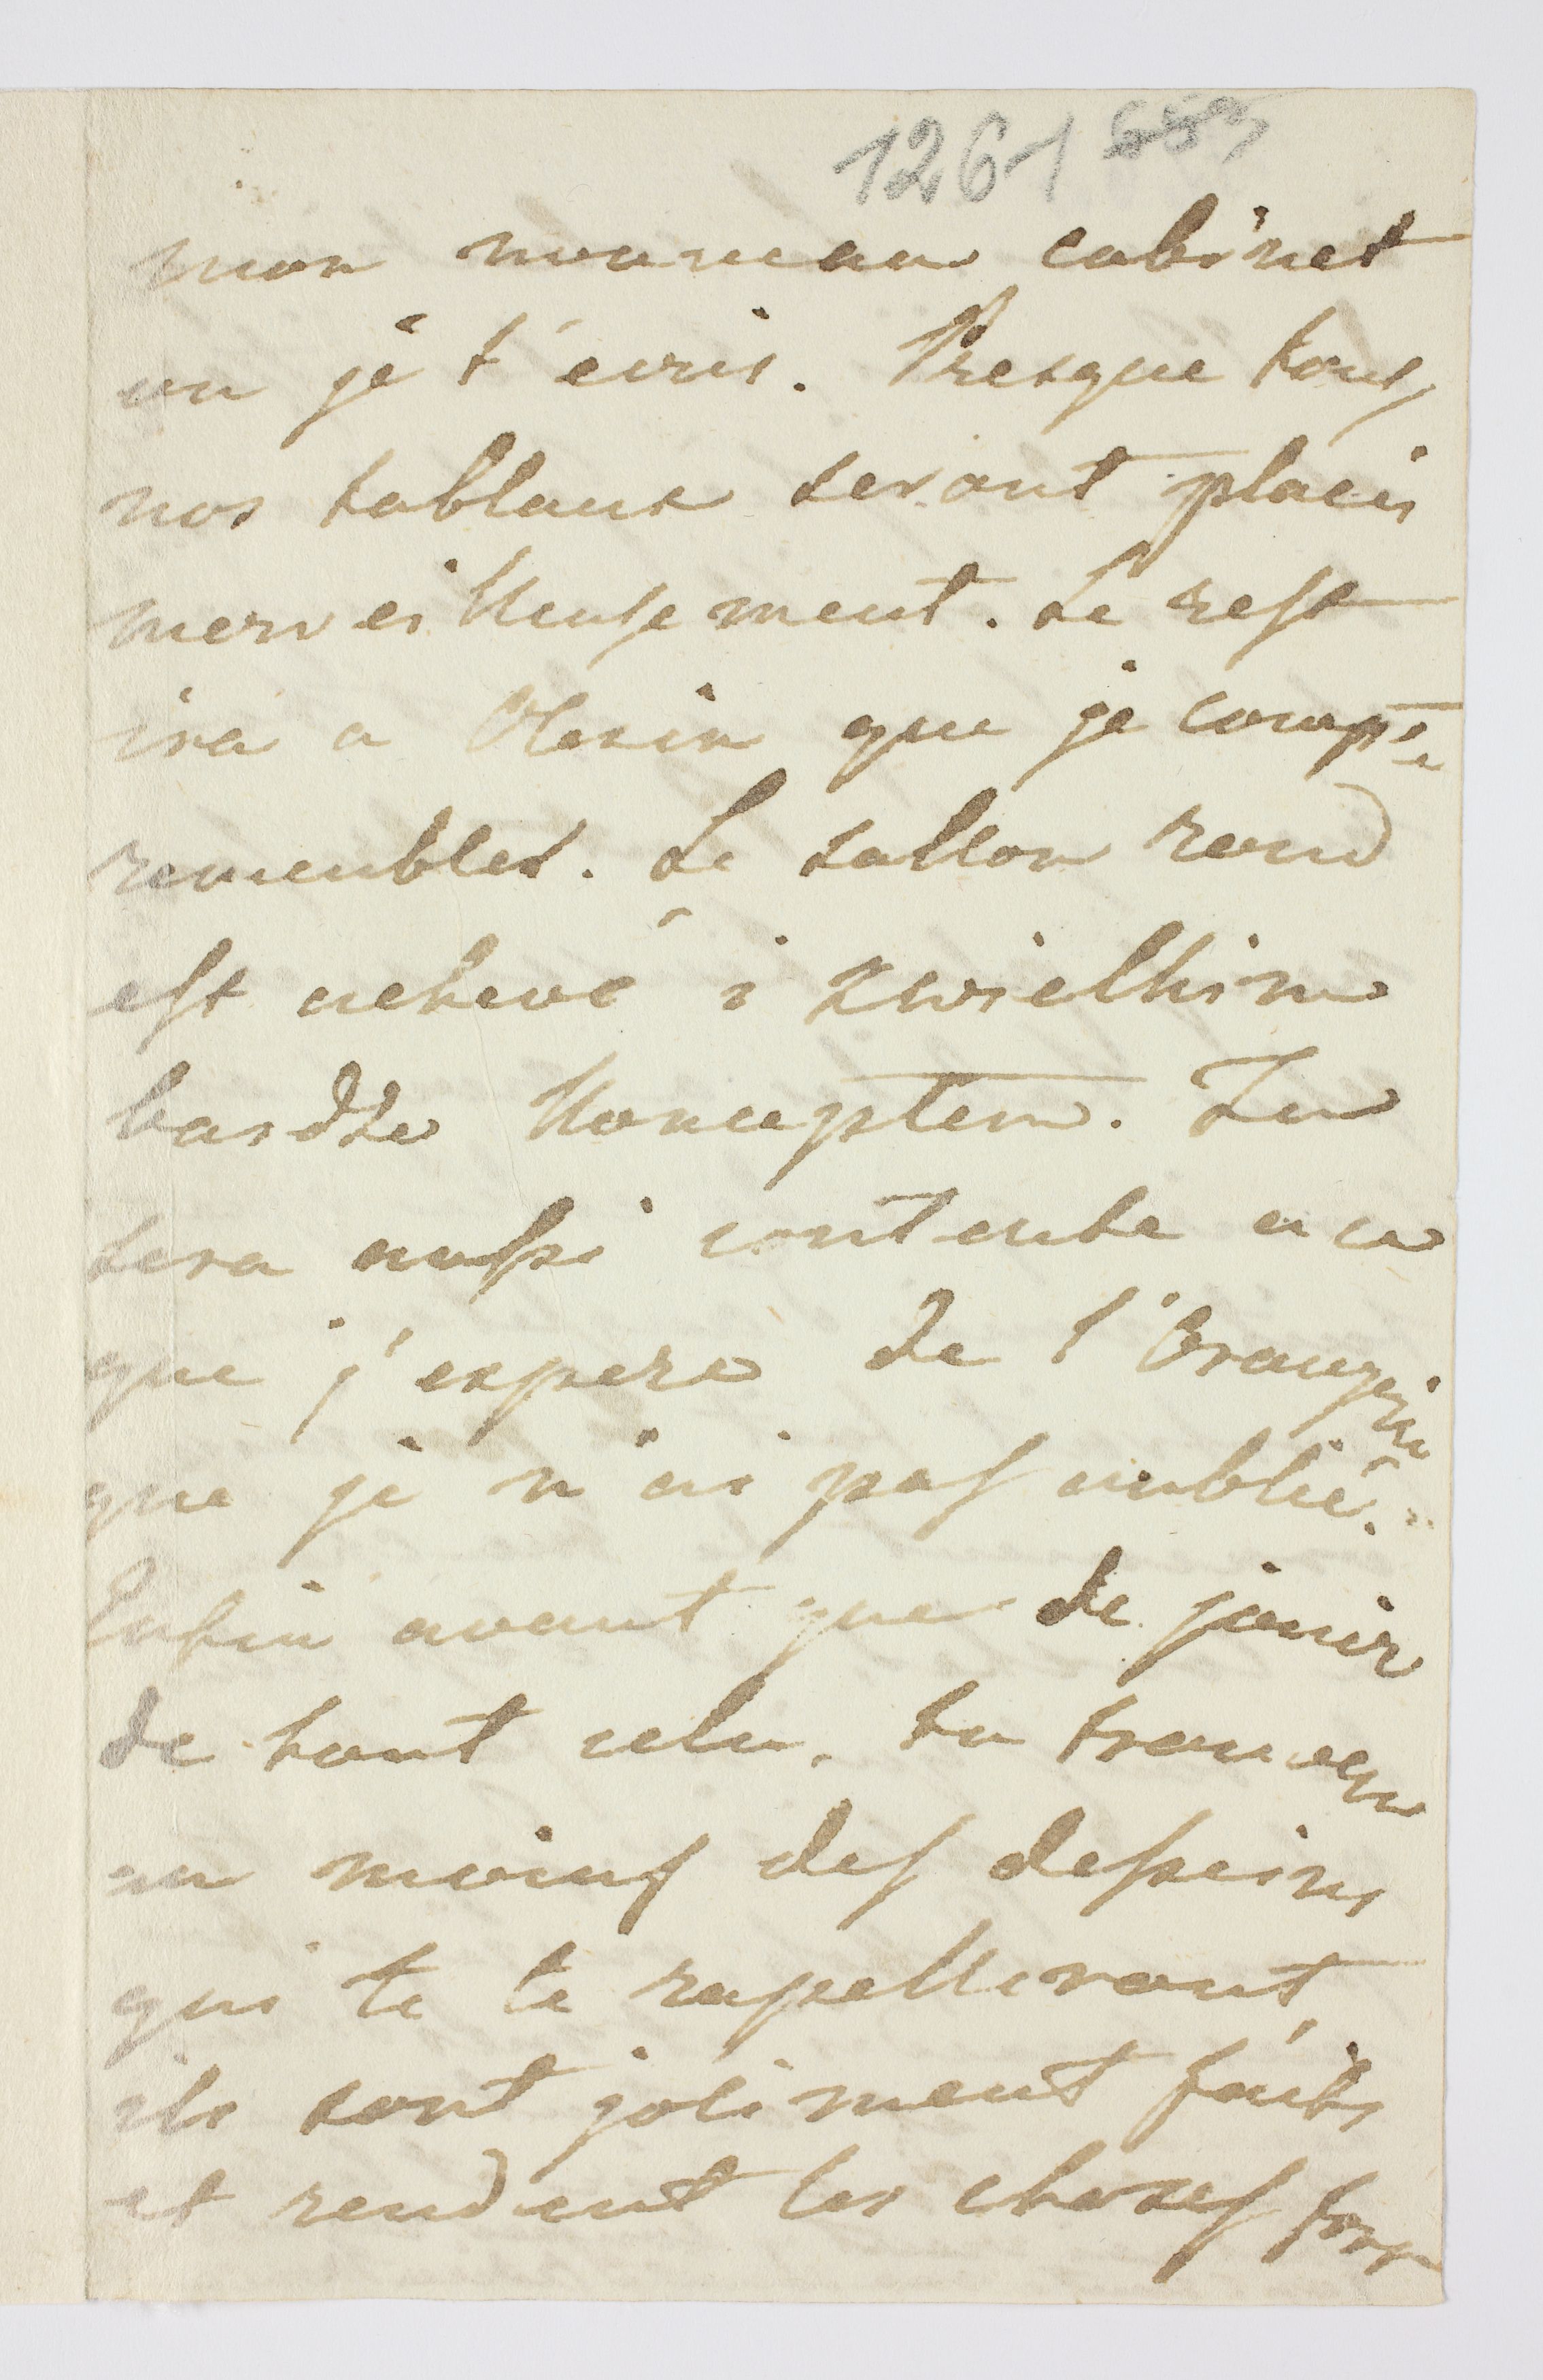 1261
mon nouveau cabinet
ou je t'ecris. Presque tous
nos tablaux seront placés
merveilleusement. Le reste
ira a Olesin que je compte
remeubler. Le sallon rond
est achevé i zwielkim
bardzo konceptem. Tu
sera aussi contente a ce
que j'espere de l'Orangerie
que je n'ai pas oublié.
Enfin avant que de jouir
de tout cela, tu trouvera
au moins des desseins
qui te le rapelleront,
ils sont joliment faits
et rendent les choses fort